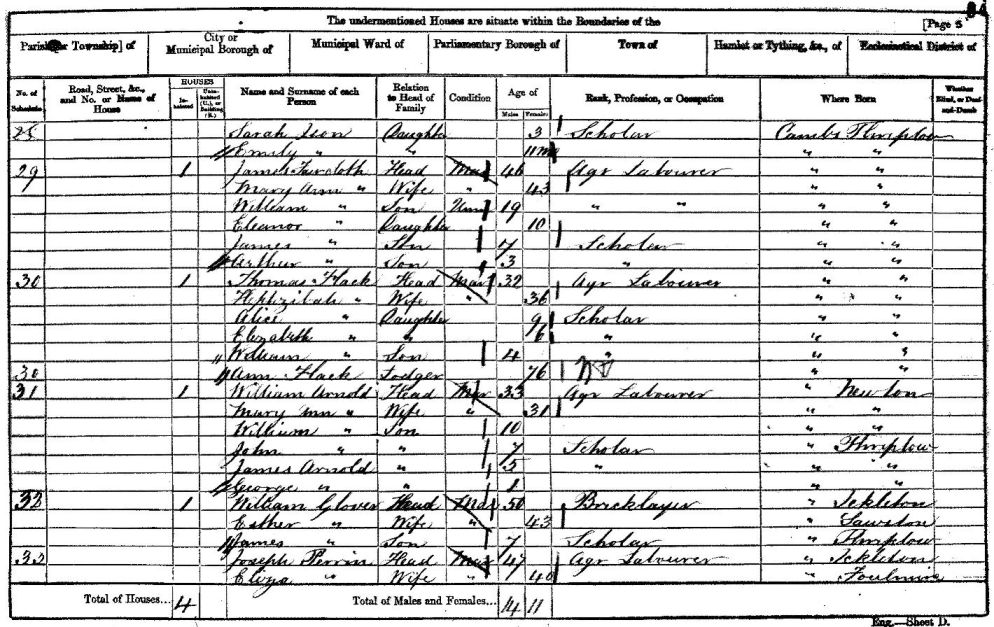 84
The undermentioned Houses are situate within the Boundaries of the
[Page 5
Parish [or Township] of City or Municipal Borough of Municipal Ward of Parliamentary Borough of Town of Hamlet or Tything, &c., of Ecclesiastical District of
No. of Schedule Road, Street, &c., and No. or Name of House HOUSES Inhabited Uninhabited (U.), or Building (B.) Name and Surname of each Person Relation to Head of Family Condition Age of Males Females Rank, Profession, or Occupation Where Born Whether Blind, or Deaf-and-Dumb
Sarah Daughter 3 Scholar Cambs Thriplow
Emily " " 11 " "
29 1 James Faircloth Head Mar 46 Agr Labourer " "
Mary Ann " Wife " 43 " "
William " Son Unm 19 " " " "
Eleanor " Daughter 10 " "
James " Son 7 Scholar " "
Arthur " Son 3 " " "
30 1 Thomas Flack Head Mar 32 Agr Labourer " "
Hephzibah " Wife " 36 " "
Alice " Daughter 9 Scholar " "
Elizabeth " " 6 " " "
William " Son 4 " " "
30 Ann Flack Lodger 76 " "
31 1 William Arnold Head Mar 33 Agr Labourer " Newton
Mary Ann " Wife " 31 " "
William " Son 10 " "
John " " 7 Scholar " Thriplow
James Arnold " 5 " " "
George " " 1 " "
32 1 William Glover Head Mar 50 Bricklayer " Ickleton
Esther " Wife " 43 " Sawston
James " Son 7 Scholar " Thriplow
33 Joseph Perrin Head Mar 47 Agr Labourer " Ickleton
Eliza " Wife " 40 " Foulmire
Total of Houses... 4 Total of Males and Females... 14 11
Eng.—Sheet D.